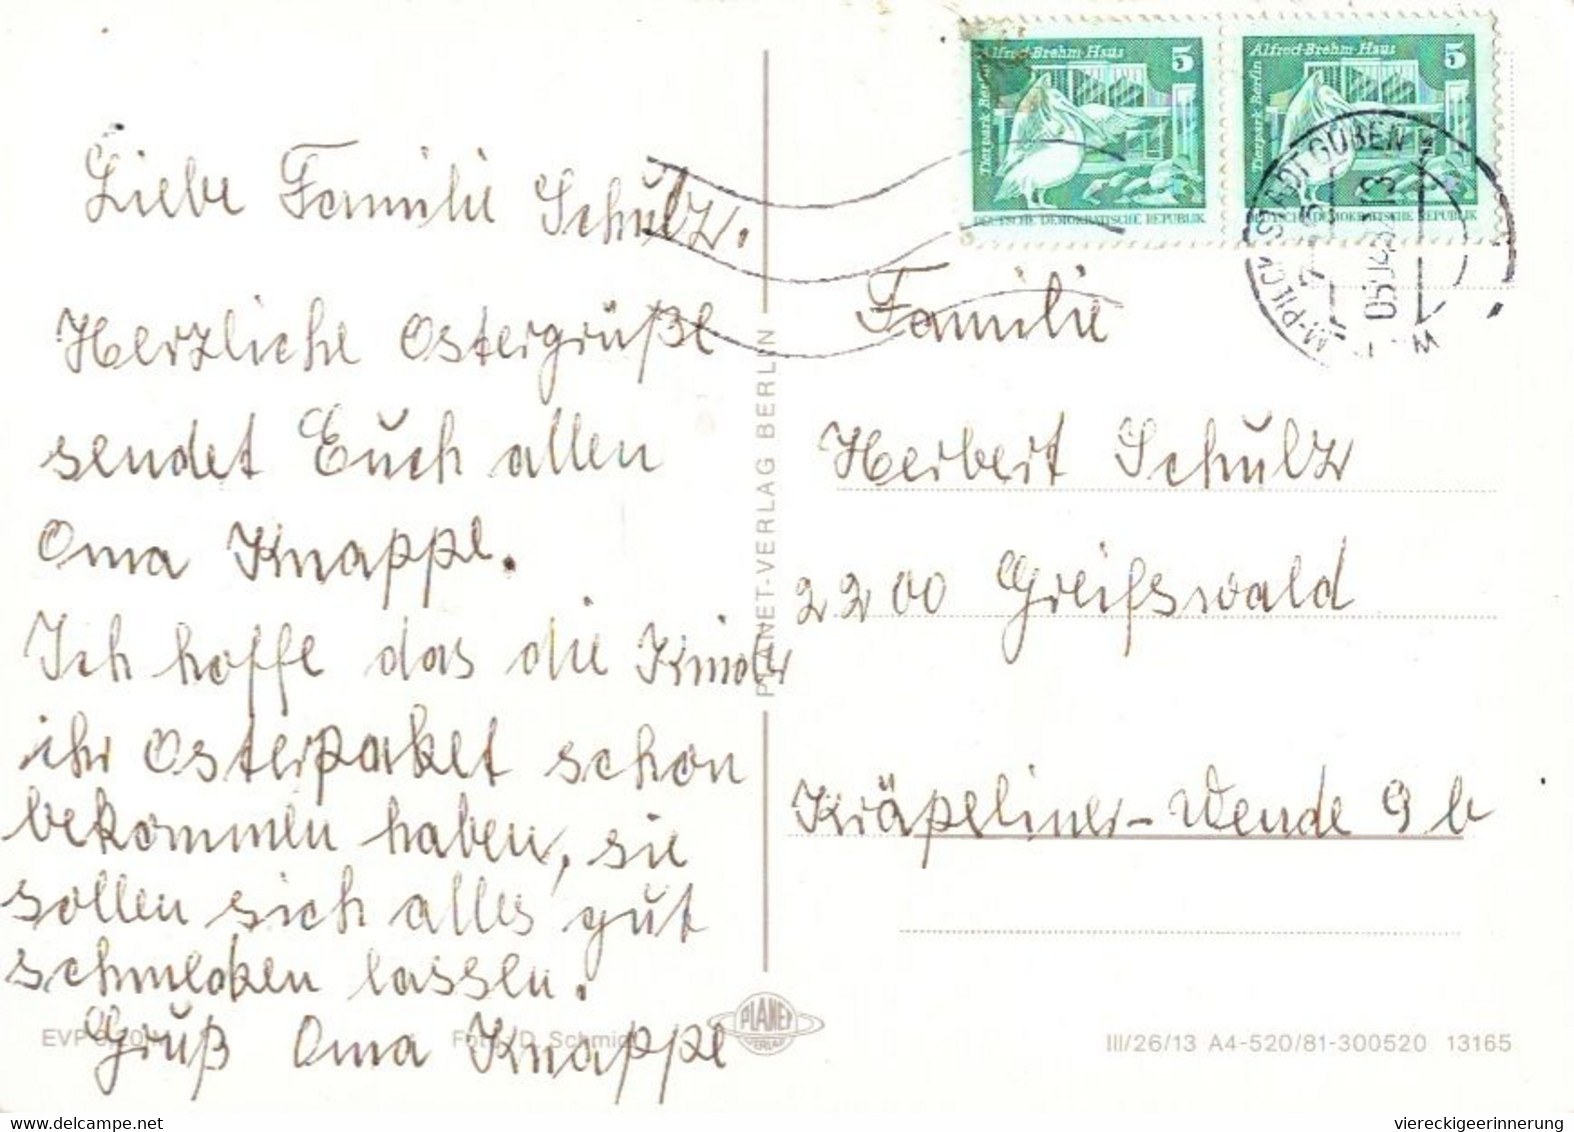 Liebe Familie Schulz.
Herzliche Ostergrüße
sendet Euch allen
Oma Knappe.
Ich hoffe das die Kinder
ihr Osterpaket schon
bekommen haben, sie
sollen sich alles gut
schmecken lassen.
Gruß Oma Knappe
EVP
Foto: D. Schmidt
PLANET-VERLAG BERLIN
PLANET
VERLAG
Alfred-Brehm-Haus 5
Tierpark Berlin
DEUTSCHE DEMOKRATISCHE REPUBLIK
Alfred-Brehm-Haus 5
Tierpark Berlin
DEUTSCHE DEMOKRATISCHE REPUBLIK
W.-PIECK-STADT GUBEN
Familie
Herbert Schulz
2200 Greifswald
Kräpeliner-Wende 9b
III/26/13 A4-520/81-300520 13165
viereckigeerinnerung